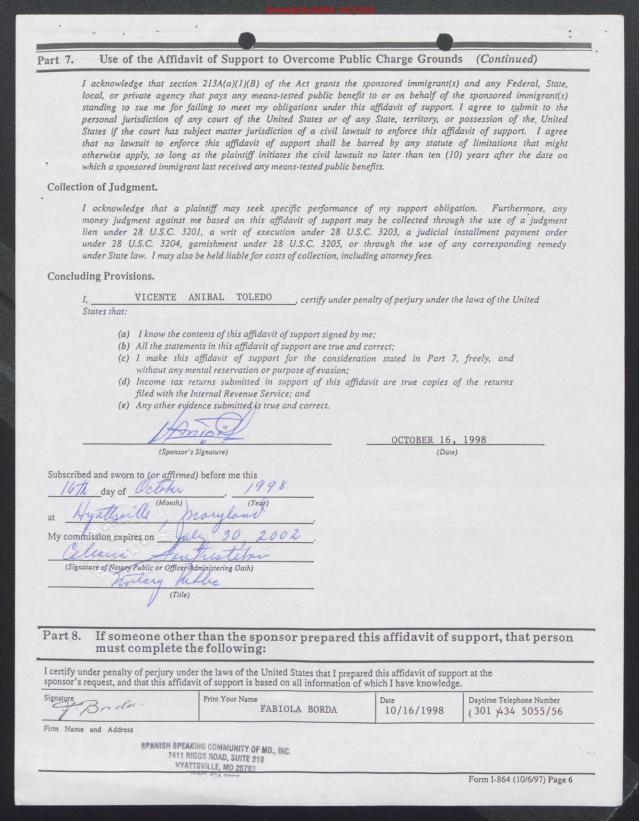 Part 7. Use of the Affidavit of Support to Overcome Public Charge Grounds (Continued)
I acknowledge that section 213A(a)(1)(B) of the Act grants the sponsored immigrant(s) and any Federal, State,
local, or private agency that pays any means-tested public benefit to or on behalf of the sponsored immigrant(s)
standing to sue me for failing to meet my obligations under this affidavit of support. I agree to submit to the
personal jurisdiction of any court of the United States or of any State, territory, or possession of the United
States if the court has subject matter jurisdiction of a civil lawsuit to enforce this affidavit of support. I agree
that no lawsuit to enforce this affidavit of support shall be barred by any statute of limitations that might
otherwise apply, so long as the plaintiff initiates the civil lawsuit no later than ten (10) years after the date on
which a sponsored immigrant last received any means-tested public benefits.
Collection of Judgment.
I acknowledge that a plaintiff may seek specific performance of my support obligation. Furthermore, any
money judgment against me based on this affidavit of support may be collected through the use of a judgment
lien under 28 U.S.C. 3201, a writ of execution under 28 U.S.C. 3203, a judicial installment payment order
under 28 U.S.C. 3204, garnishment under 28 U.S.C. 3205, or through the use of any corresponding remedy
under State law. I may also be held liable for costs of collection, including attorney fees.
Concluding Provisions.
I, VICENTE ANIBAL TOLEDO, certify under penalty of perjury under the laws of the United
States that:
(a) I know the contents of this affidavit of support signed by me;
(b) All the statements in this affidavit of support are true and correct;
(c) I make this affidavit of support for the consideration stated in Part 7, freely, and
without any mental reservation or purpose of evasion;
(d) Income tax returns submitted in support of this affidavit are true copies of the returns
filed with the Internal Revenue Service; and
(e) Any other evidence submitted is true and correct.
OCTOBER 16, 1998
(Sponsor's Signature) (Date)
Subscribed and sworn to (or affirmed) before me this
16th day of October, 1998
(Month) (Year)
at Hyattsville, Maryland
My commission expires on July 30 2002
(Signature of Notary Public or Officer Administering Oath)
Notary Public
(Title)
Part 8. If someone other than the sponsor prepared this affidavit of support, that person
must complete the following:
I certify under penalty of perjury under the laws of the United States that I prepared this affidavit of support at the
sponsor's request, and that this affidavit of support is based on all information of which I have knowledge.
Signature Print Your Name Date Daytime Telephone Number
F Borda. FABIOLA BORDA 10/16/1998 (301 )434 5055/56
Firm Name and Address
SPANISH SPEAKING COMMUNITY OF MD., INC.
7411 RIGGS ROAD, SUITE 210
HYATTSVILLE, MD 20783
Form I-864 (10/6/97) Page 6